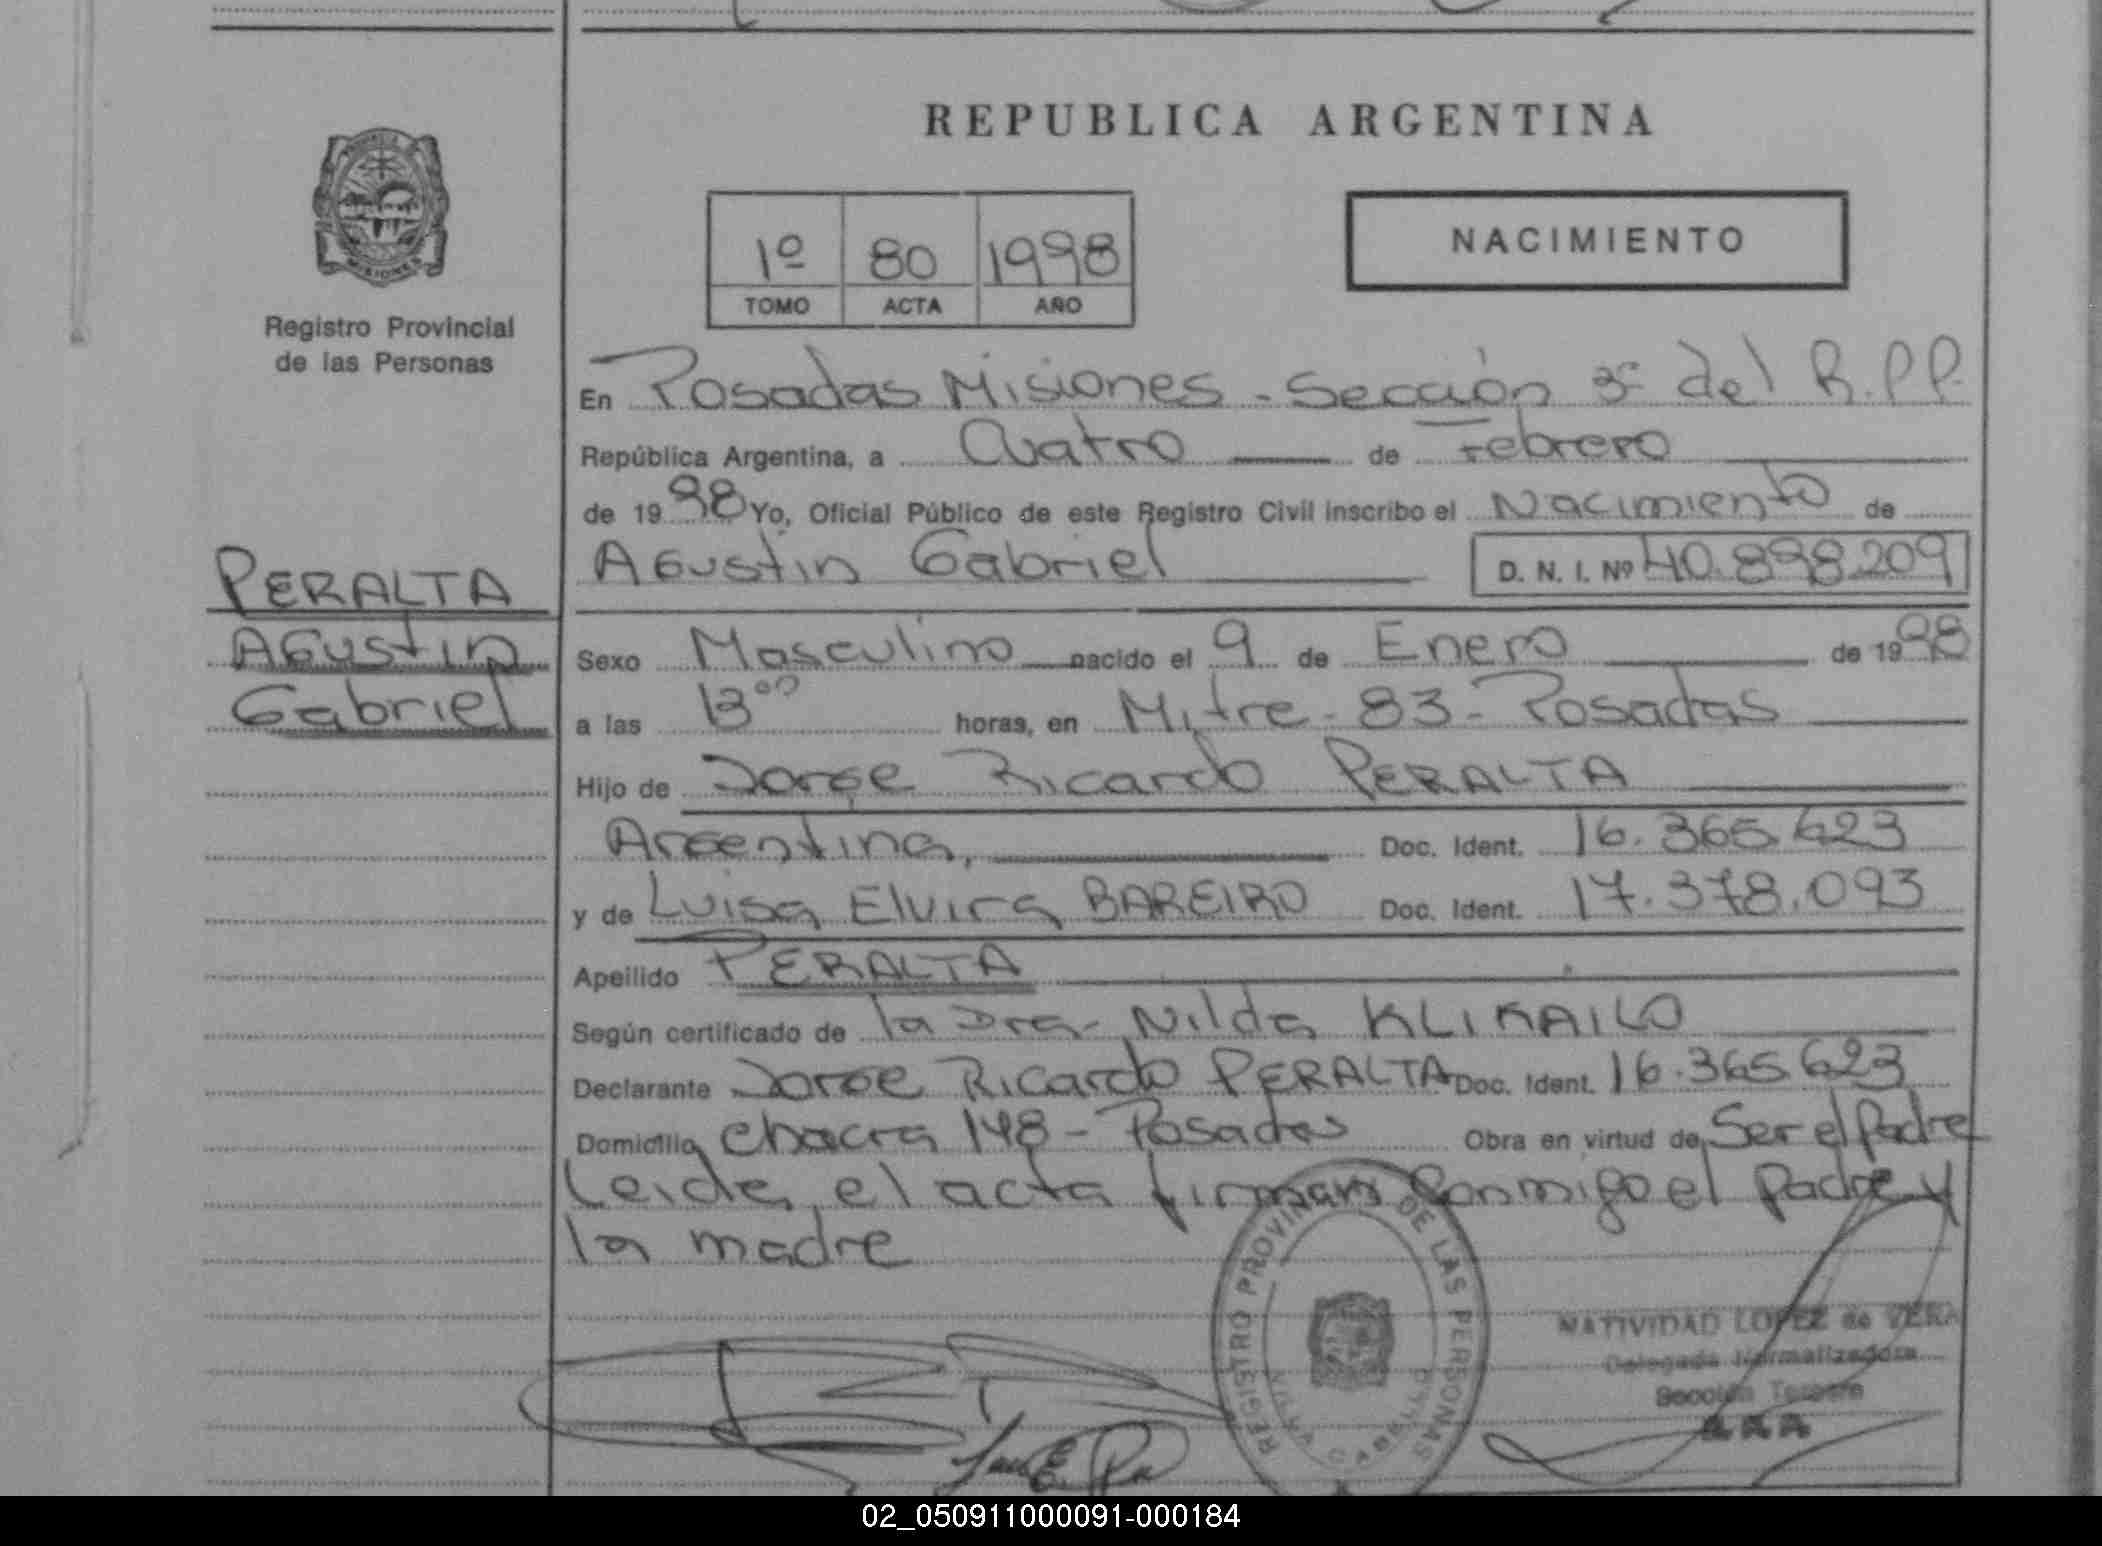 REPUBLICA ARGENTINA
MISIONES
Registro Provincial
de las Personas
1º 80 1998
TOMO ACTA AÑO
NACIMIENTO
En Posadas Misiones - Sección 3ª del R.P.P.
República Argentina, a Cuatro de Febrero
de 1998 Yo, Oficial Público de este Registro Civil inscribo el Nacimiento de
PERALTA
Agustin
Gabriel
Agustin Gabriel D. N. I. Nº 40.898.209
Sexo Masculino nacido el 9 de Enero de 1998
a las 13⁰⁰ horas, en Mitre - 83 - Posadas
Hijo de Jorge Ricardo PERALTA
Argentina, Doc. Ident. 16.365.623
y de Luisa Elvira BAREIRO Doc. Ident. 17.378.093
Apellido PERALTA
Según certificado de la Dra - Nilda KLIKAILO
Declarante Jorge Ricardo PERALTA Doc. Ident. 16.365.623
Domicilio chacra 148 - Posadas Obra en virtud de Ser el Padre
Leida el acta firman conmigo el padre y
la madre
REGISTRO PROVINCIAL DE LAS PERSONAS
NATIVIDAD LOPEZ de VERA
Delegada Normalizadora
Sección Tercera
02_050911000091-000184